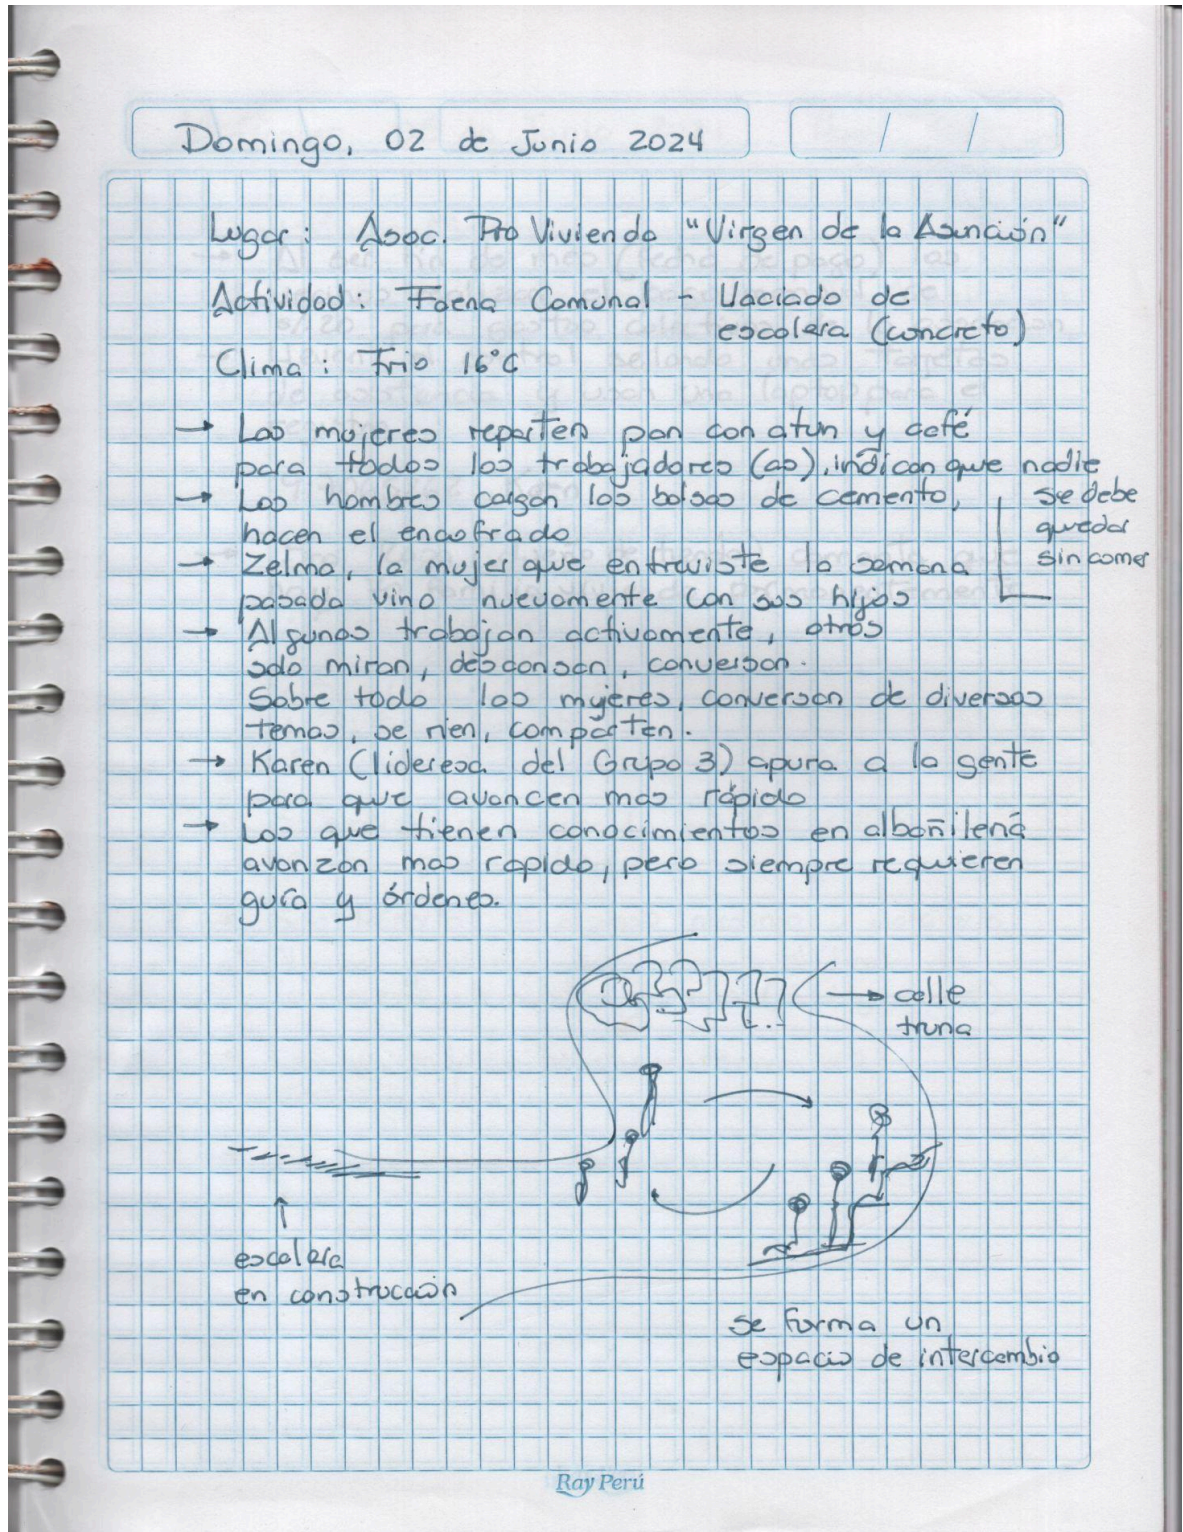 Domingo, 02 de Junio 2024
Lugar: Asoc. Pro Vivienda "Virgen de la Asunción"
Actividad: Faena Comunal - Vaciado de
escalera (concreto)
Clima: Frio 16°C
→ Las mujeres reparten pan con atun y café
para todos los trabajadores (as), indican que nadie
se debe
quedar
sin comer
→ Los hombres cargan las bolsas de cemento,
hacen el encofrado
→ Zelma, la mujer que entreviste la semana
pasada vino nuevamente con sus hijos
→ Algunos trabajan activamente, otros
solo miran, descansan, conversan.
Sobre todo las mujeres, conversan de diversos
temas, se rien, comparten.
→ Karen (lideresa del Grupo 3) apura a la gente
para que avancen mas rápido
→ Los que tienen conocimientos en albañilería
avanzan mas rapido, pero siempre requieren
guía y órdenes.
→ calle
escalera
en construcción
se forma un
espacio de intercambio
Ray Perú